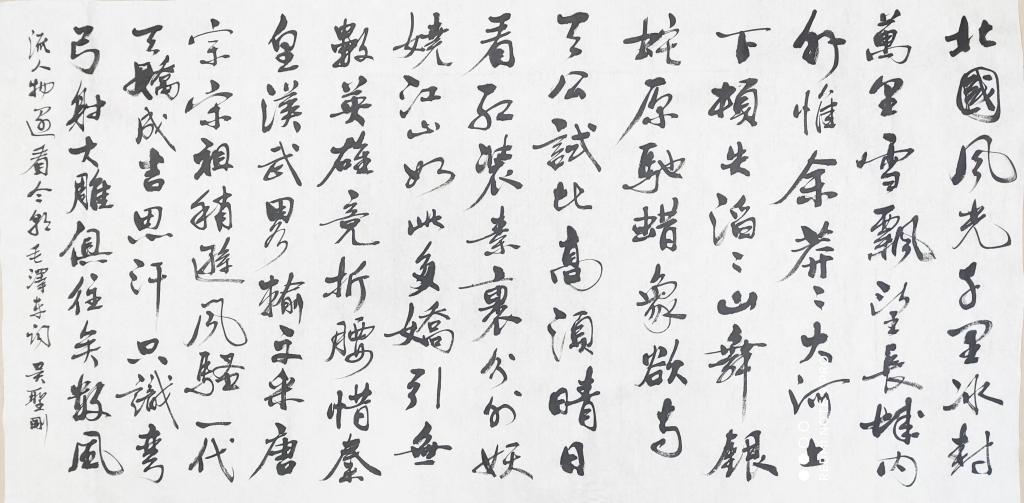 北國風光千里冰封
萬里雪飄望長城内
外惟余莽〻大河上
下頓失滔〻山舞銀
蛇原馳蜡象欲与
天公試比高須晴日
看紅裝素裹分外妖
嬈江山如此多嬌引無
數英雄竞折腰惜秦
皇漢武畧輸文采唐
宗宋祖稍遜風騷一代
天嬌成吉思汗只識彎
弓射大雕俱往矣数風
流人物還看今朝毛澤东词 吴聖剛